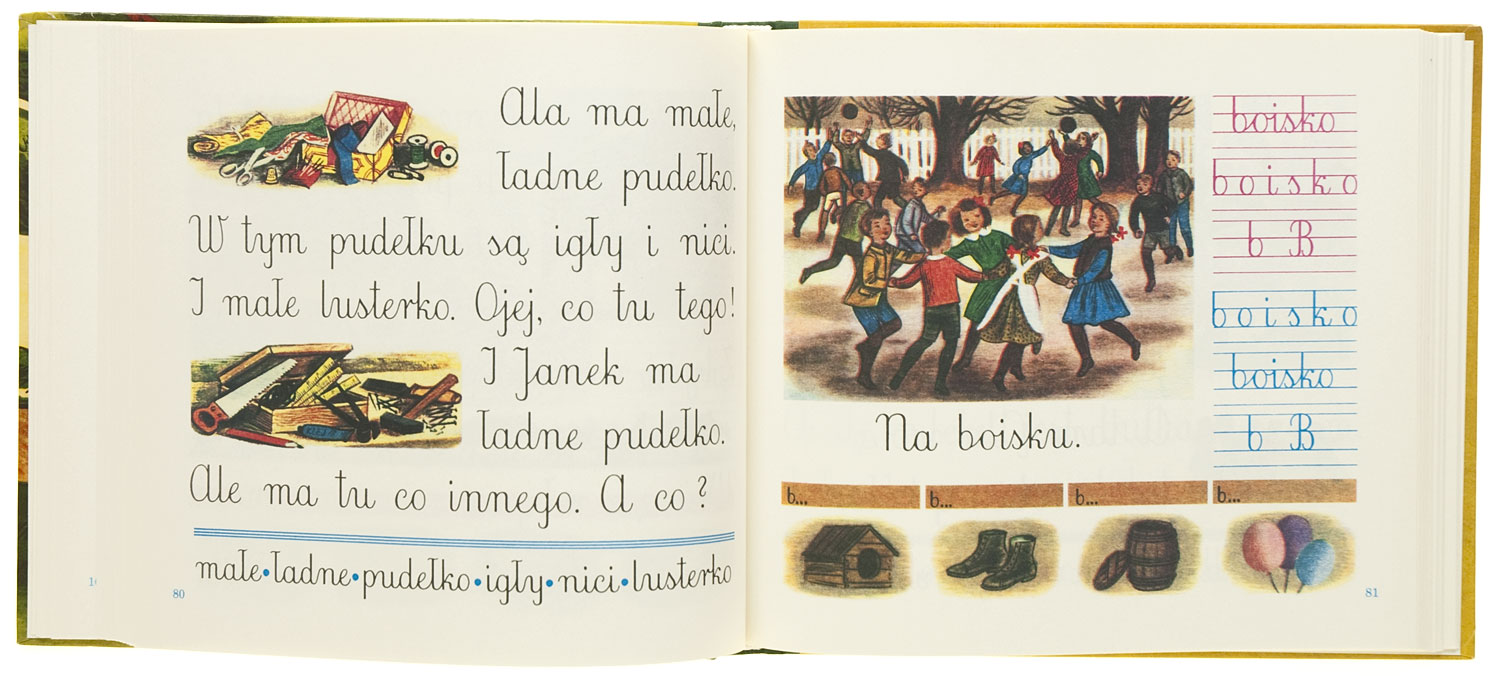 Ala ma małe,
ładne pudełko.
W tym pudełku są igły i nici.
I małe lusterko. Ojej, co tu tego!
I Janek ma
ładne pudełko.
Ale ma tu co innego. A co?
małe•ładne•pudełko•igły•nici•lusterko
80
boisko
boisko
b B
boisko
boisko
b B
Na boisku.
b... b... b... b...
81